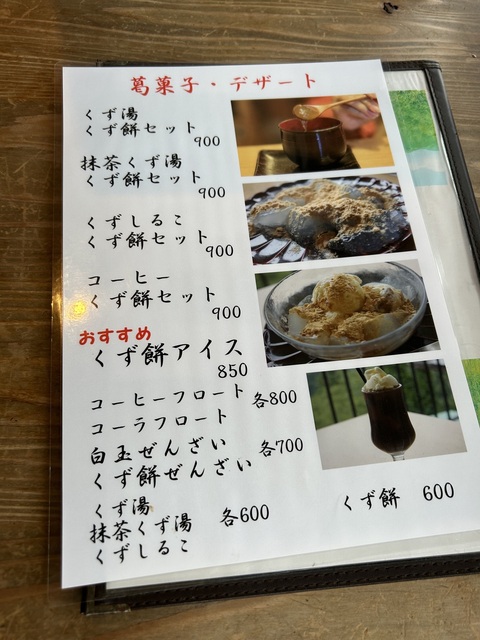 葛菓子・デザート
くず湯
くず餅セット
900
抹茶くず湯
くず餅セット
900
くずしるこ
くず餅セット
900
コーヒー
くず餅セット
900
おすすめ
くず餅アイス
850
コーヒーフロート
コーラフロート
各800
白玉ぜんざい
くず餅ぜんざい
各700
くず湯
抹茶くず湯
くずしるこ
各600
くず餅 600